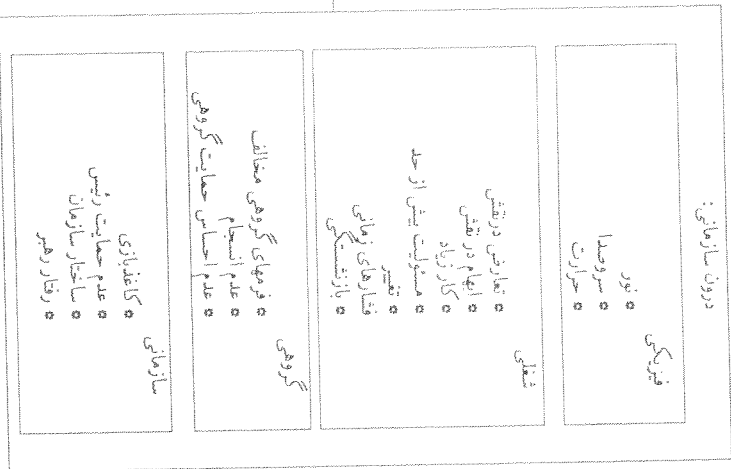 درون سازمانی:
فیزیکی
نور
سروصدا
حرارت
شغلی
تعارض درنقش
ابهام در نقش
کار زیاد
مسئولیت بیش از حد
تغییر
فشارهای زمانی
بازنشستگی
گروهی
فرمهای گروهی مخالف
عدم انسجام
عدم احساس حمایت گروهی
سازمانی
کاغذبازی
عدم حمایت رئیس
ساختار سازمان
رفتار رهبر